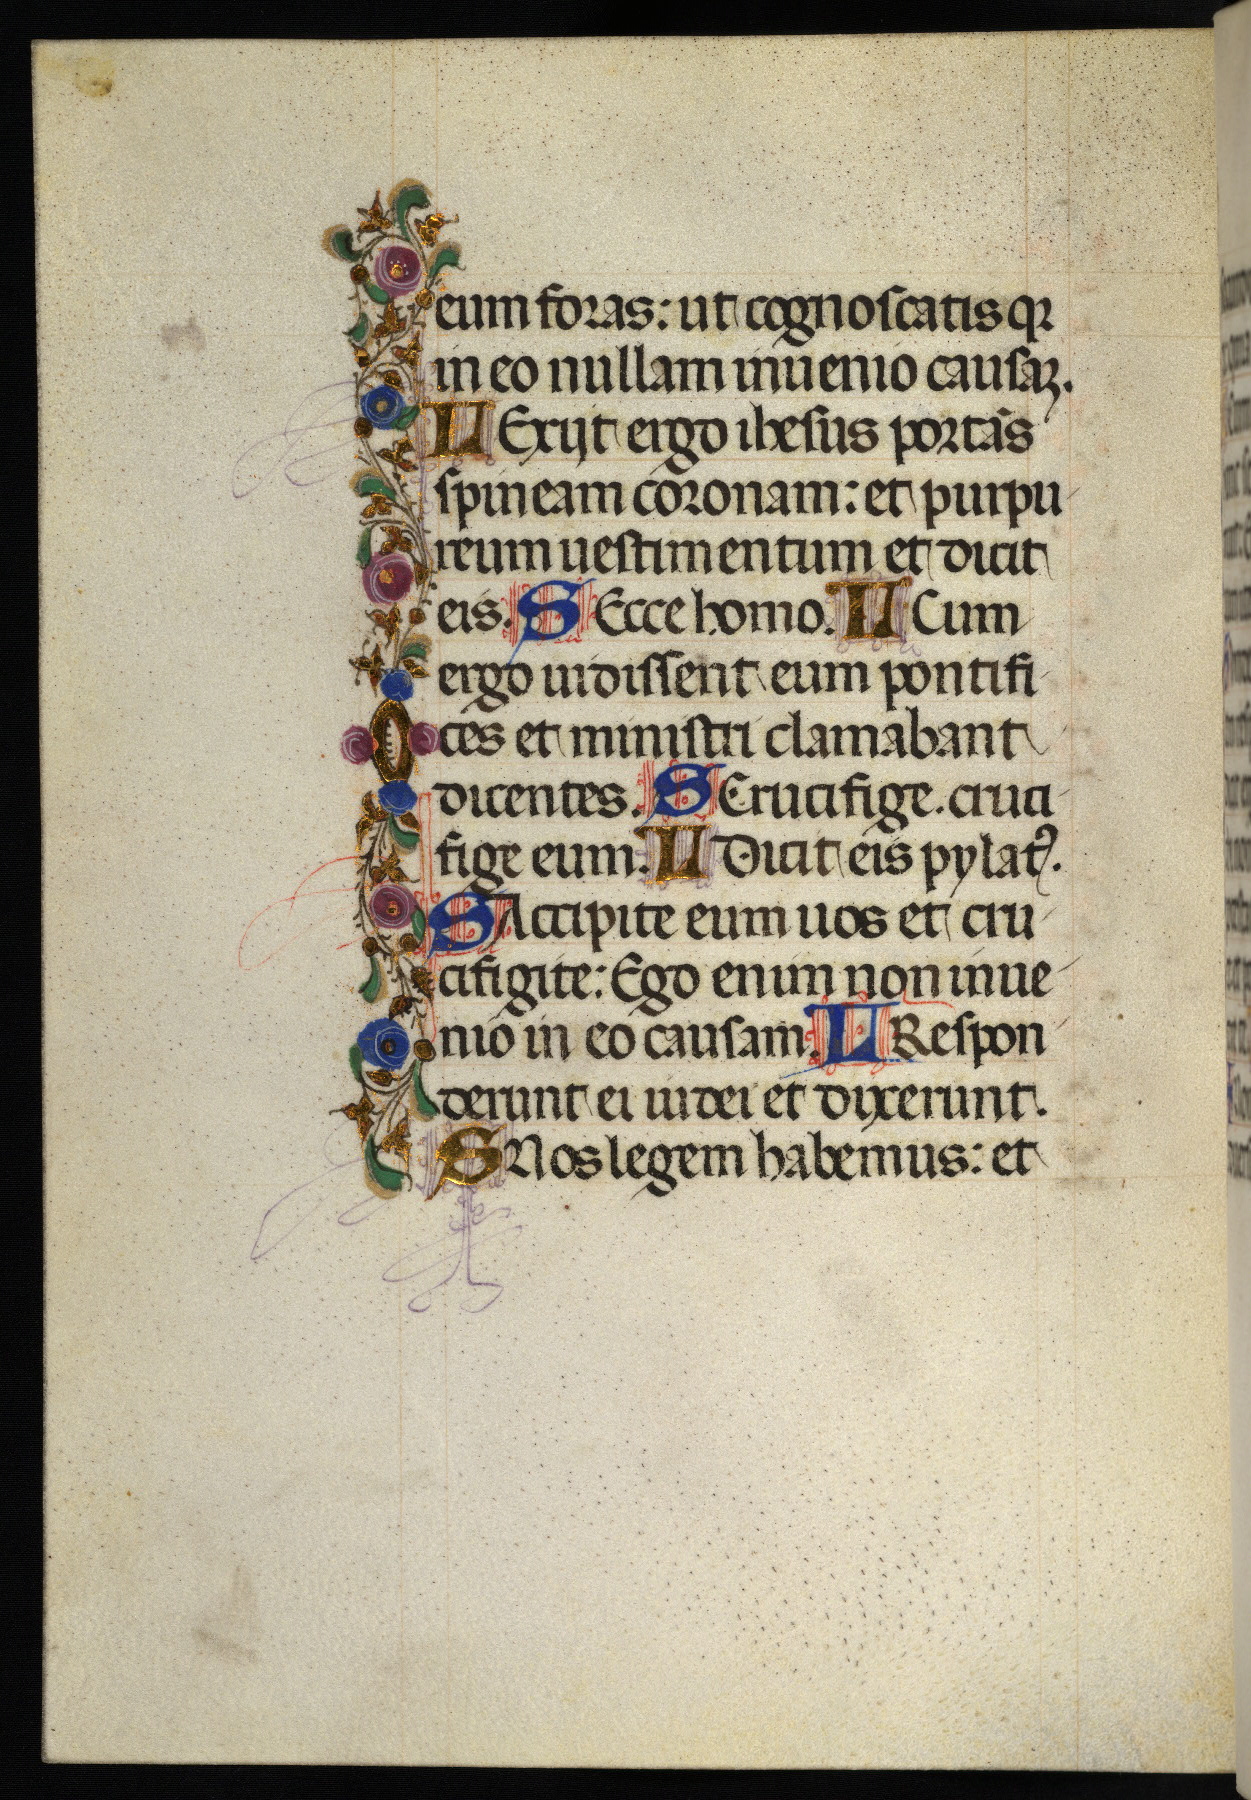 eum foras: ut cognoscatis qꝛ
in eo nullam inuenio causaꝫ.
L Exijt ergo ihesus portās
spineam coronam: et purpu-
reum uestimentum et dicit
eis. S Ecce homo. L Cum
ergo uidissent eum pontifi-
ces et ministri clamabant
dicentes. S Crucifige. cruci-
fige eum. L Dicit eis pylatꝰ.
S Accipite eum uos et cru-
cifigite: Ego enim non inue-
nio in eo causam. L Respon-
derunt ei iudei et dixerunt.
S Nos legem habemus: et